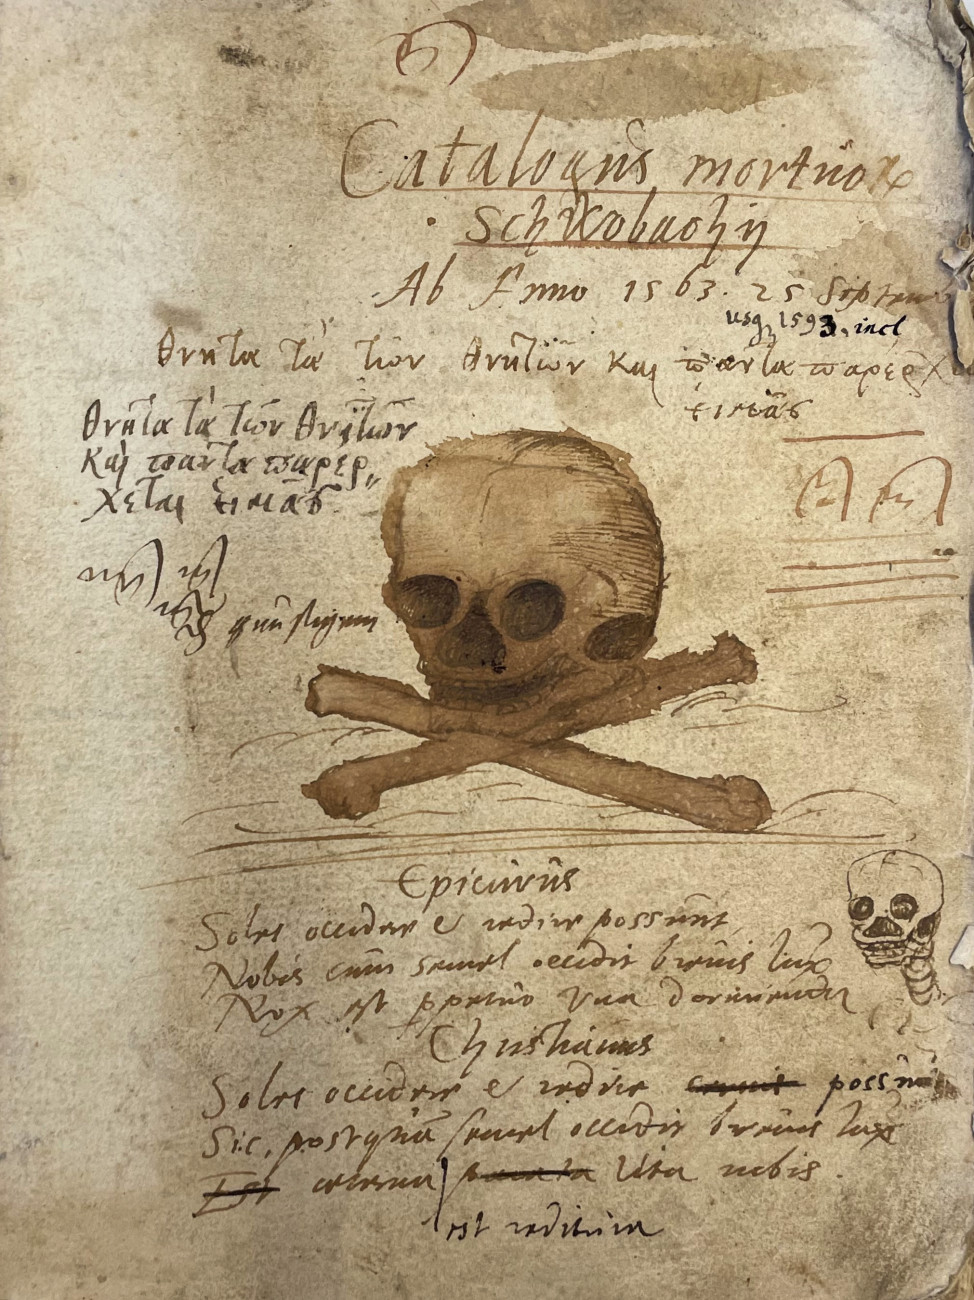 Catalogus mortuorꝝ
Schwobachij
Ab Anno 1563. 25 Septem
usq; 1593. incl
θνητα τὰ τῶν θνητῶν και παντα παρέρχ
θνητα τὰ τῶν θνητῶν
Και παντα παρερ„
χεται ἡμᾶς
ἡμᾶς
Epicurus
Soles occidere & redire possunt,
Nobis cum semel occidit breuis lux
Nox est ppetuo una dormienda
Christianus
Soles occidere & redire possun
Sic, postquā semel occidit breuis lux
Est aeterna vita nobis.
est reditura